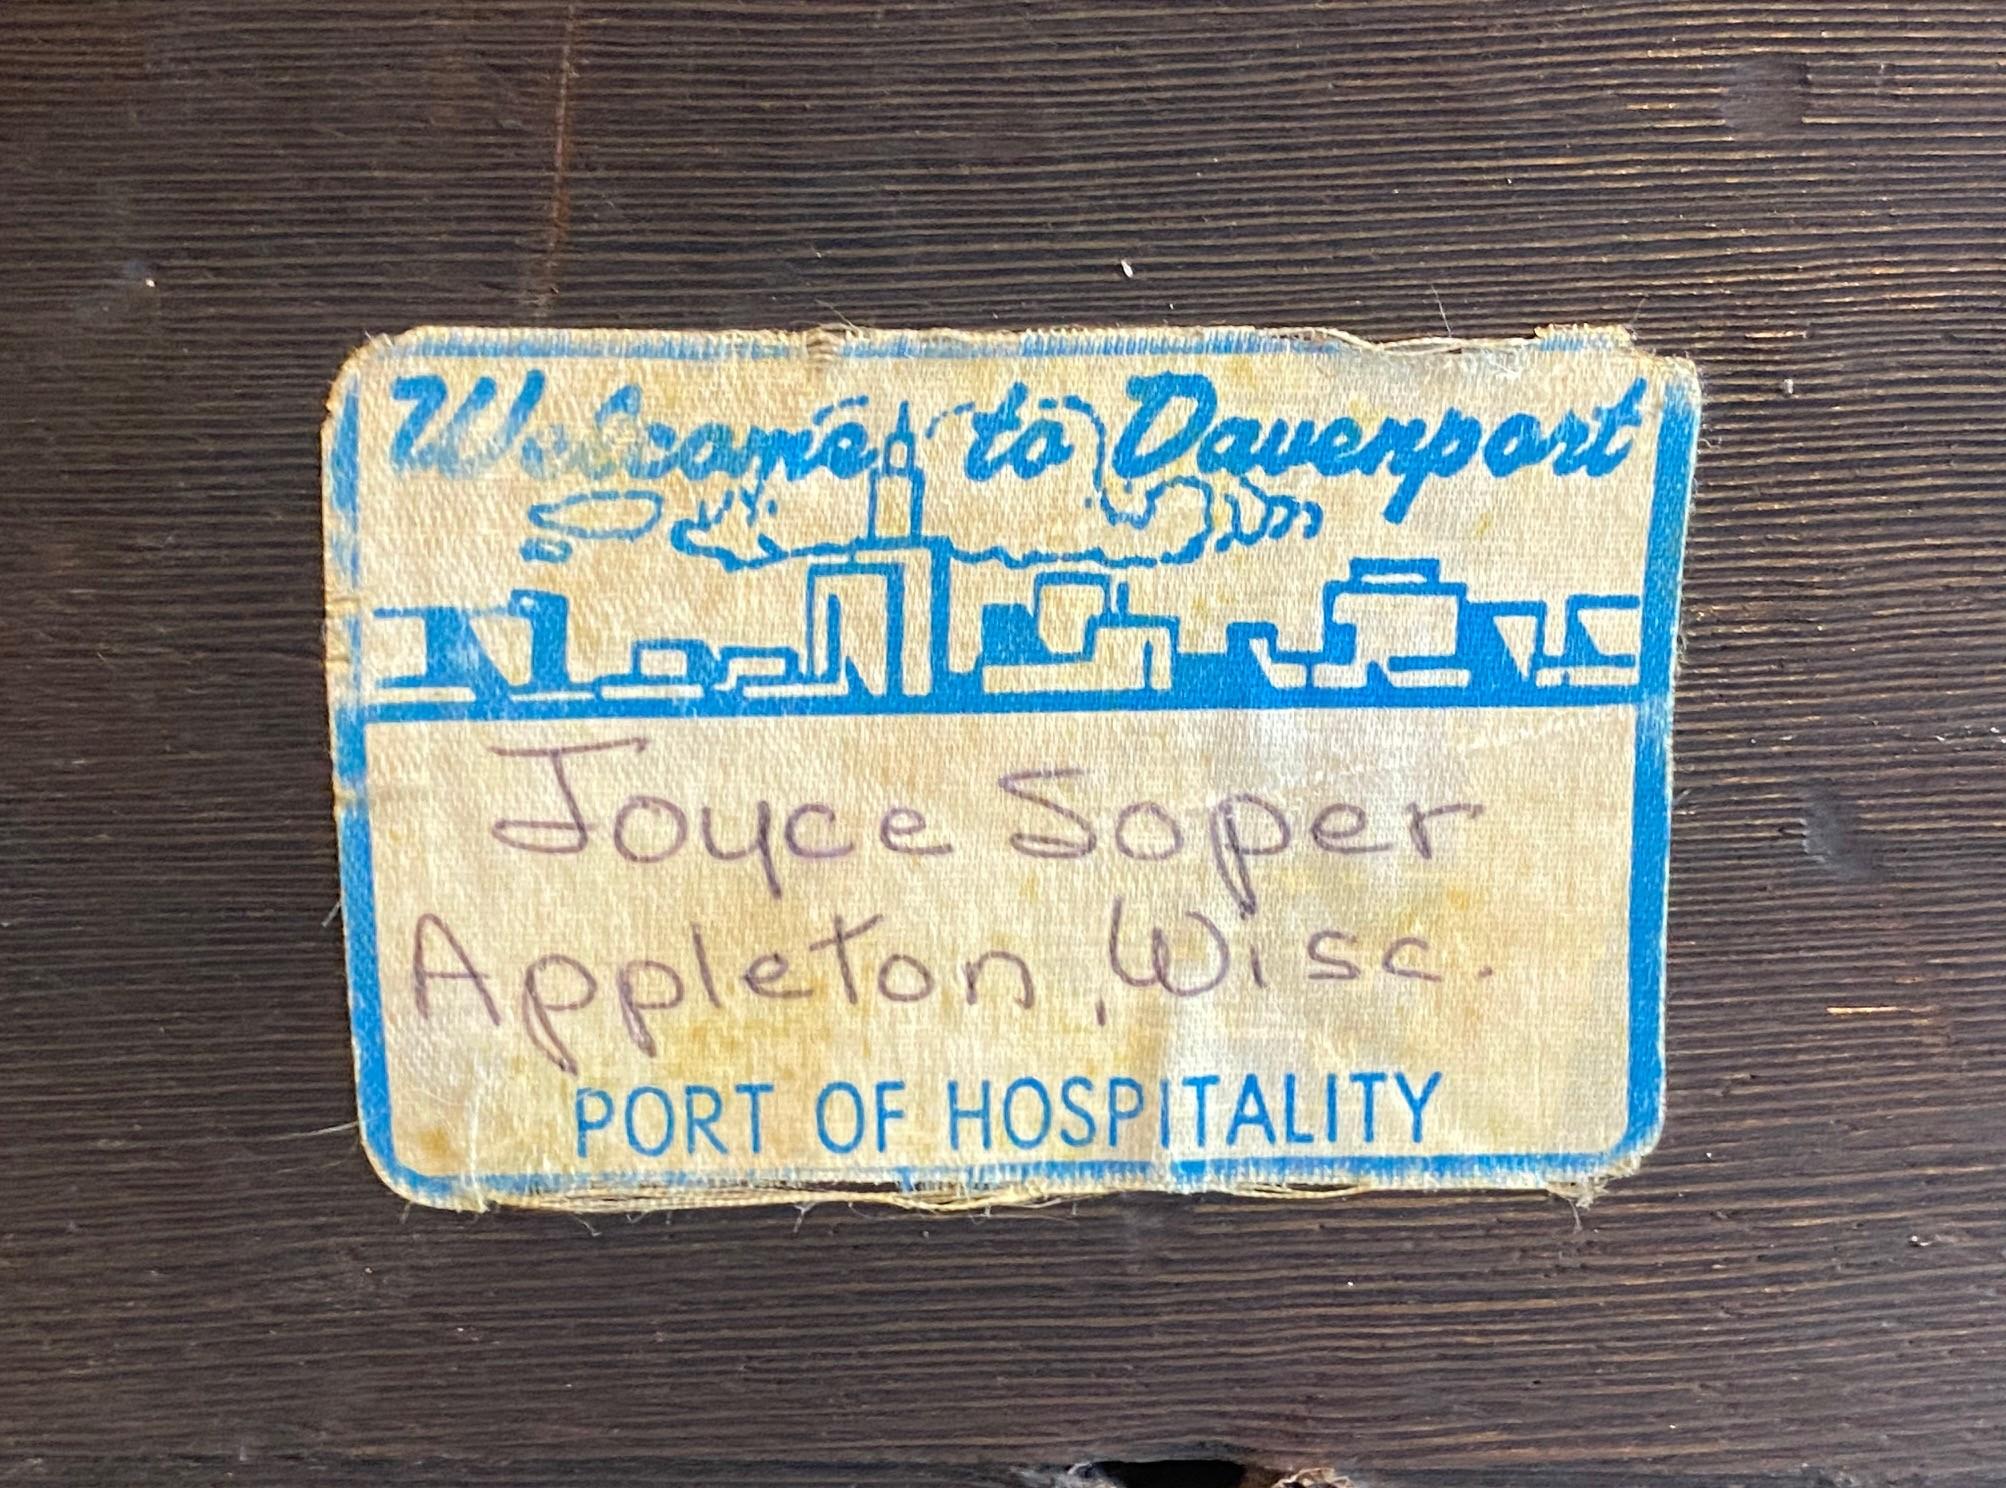 Welcome to Davenport
Joyce Soper
Appleton, Wisc.
PORT OF HOSPITALITY